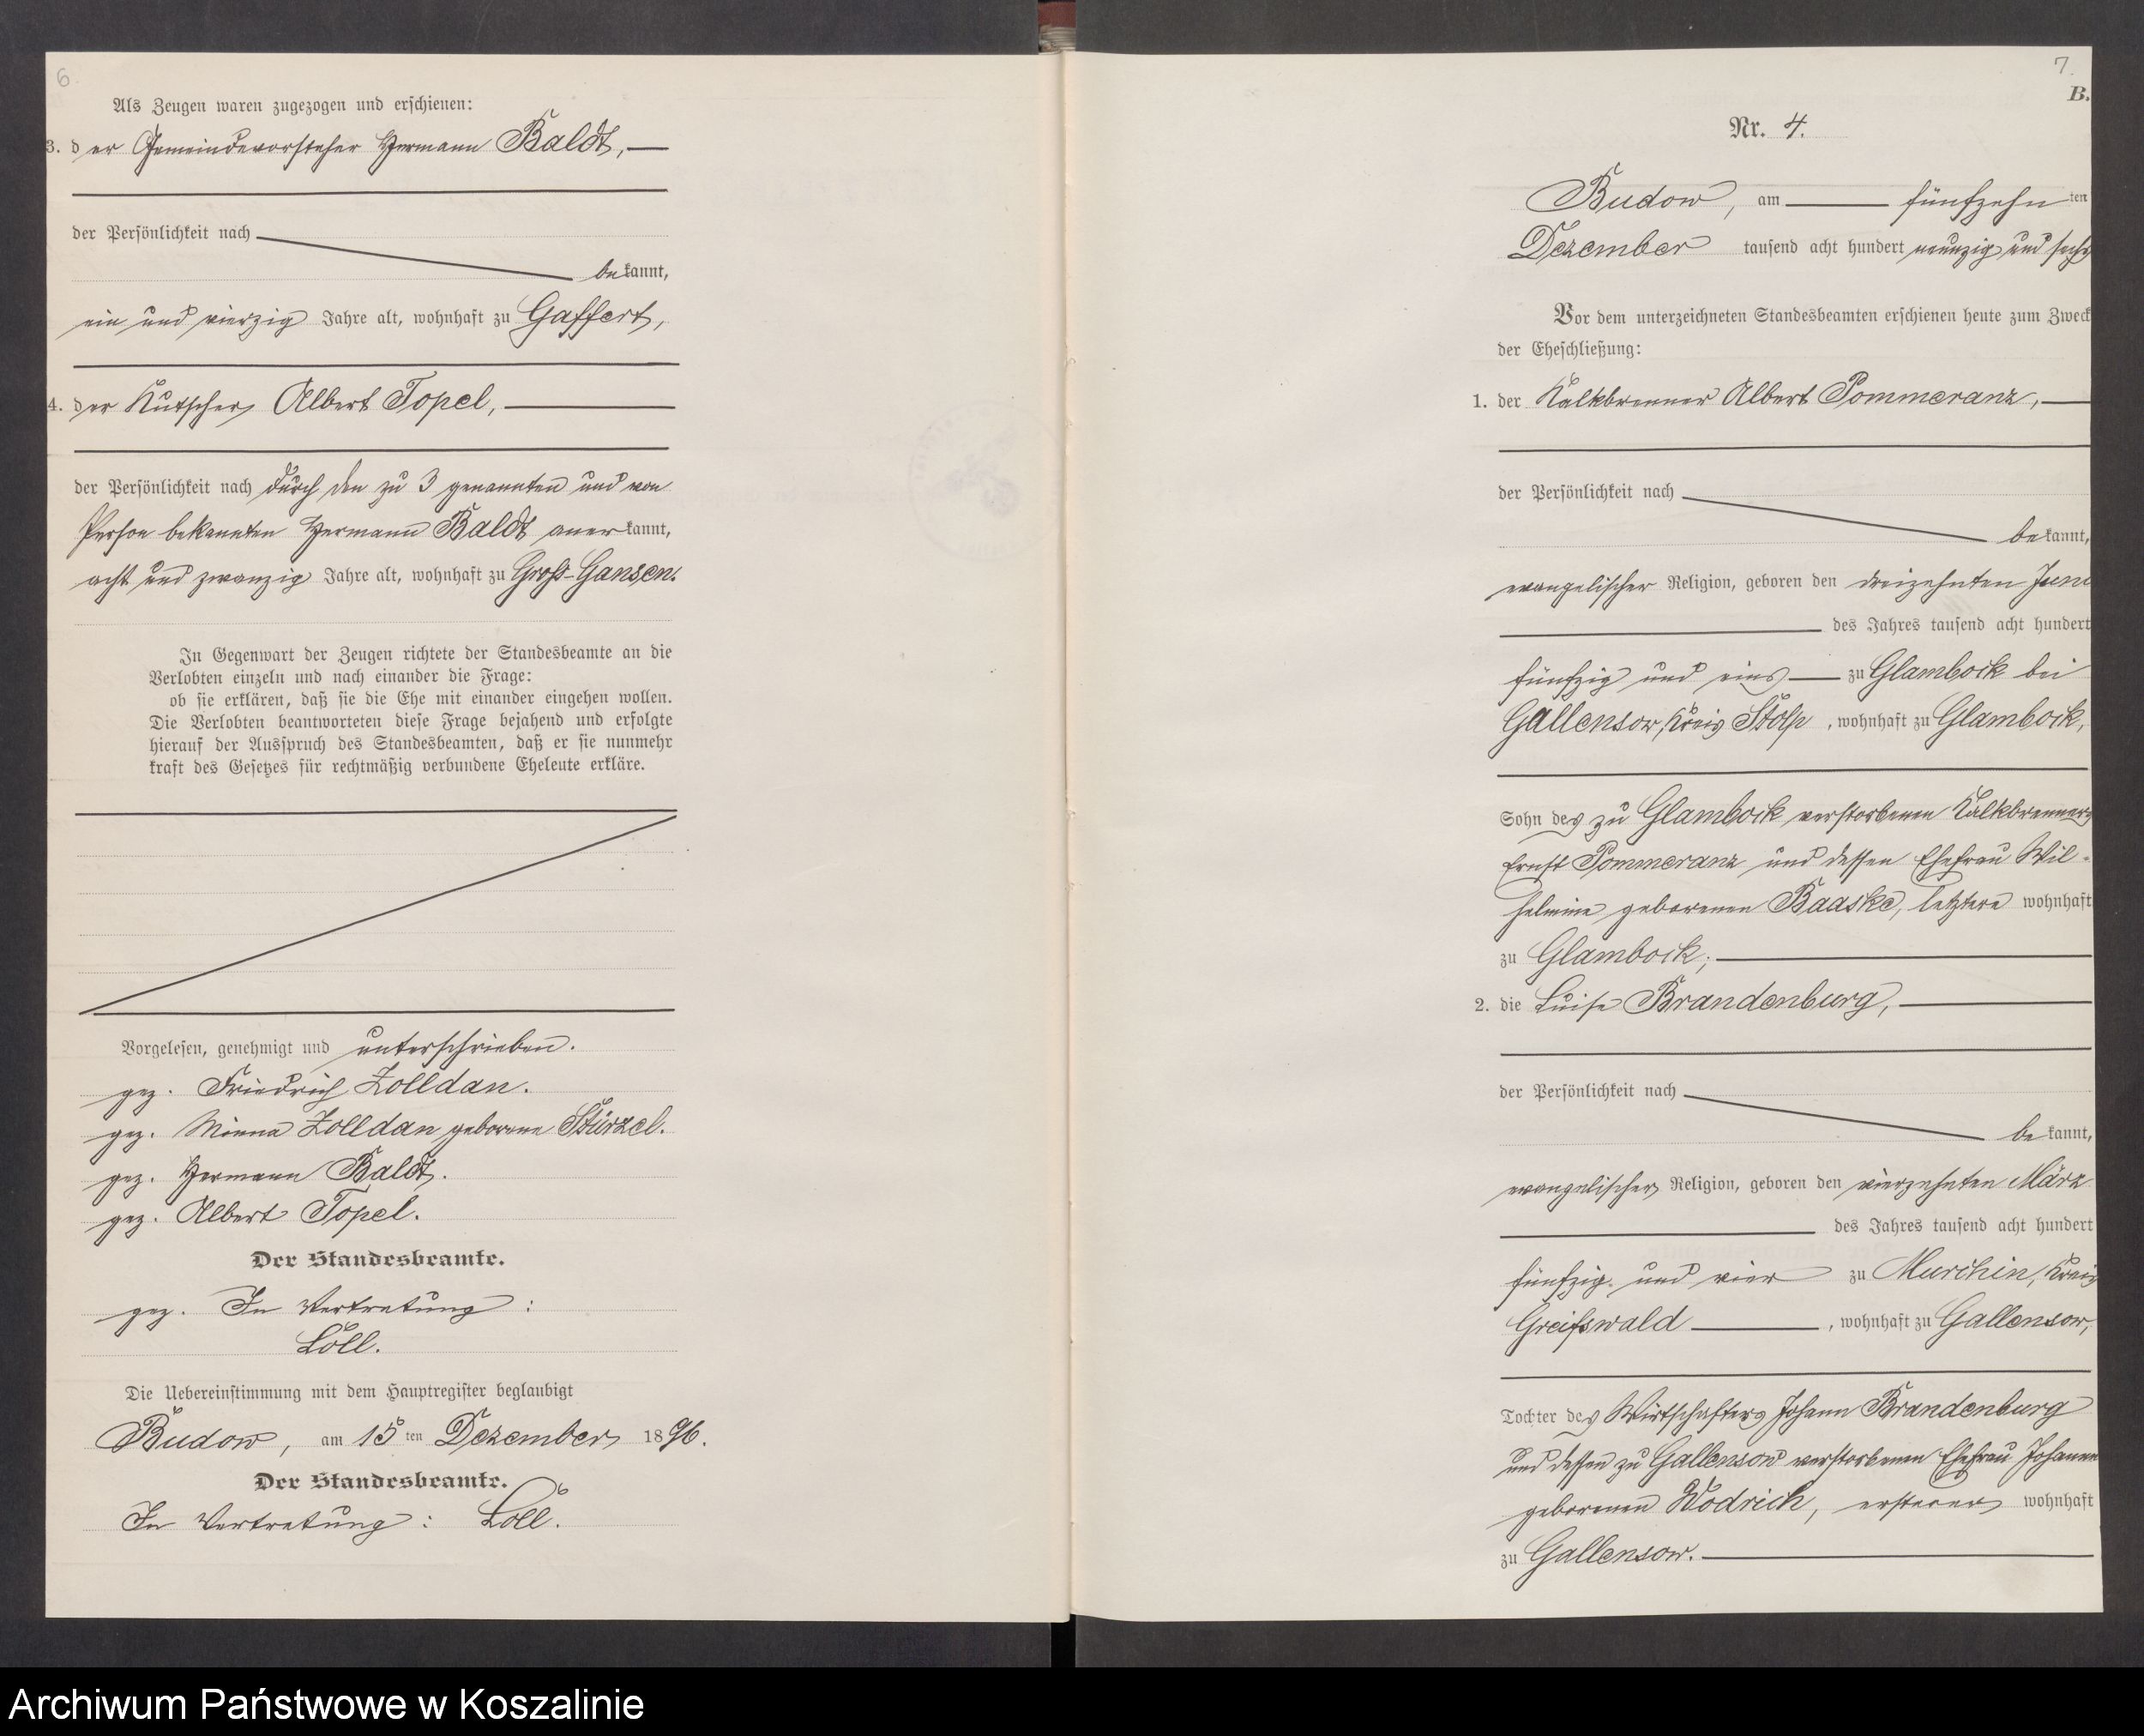 6
Als Zeugen waren zugezogen und erschienen:
3. der Gemeindevorsteher Hermann Baldt,
der Persönlichkeit nach
bekannt,
ein und vierzig Jahre alt, wohnhaft zu Gaffert,
4. der Kutscher Albert Topel,
der Persönlichkeit nach durch den zu 3 genannten und von
Person bekannten Hermann Baldt anerkannt,
acht und zwanzig Jahre alt, wohnhaft zu Groß-Gansen.
In Gegenwart der Zeugen richtete der Standesbeamte an die
Verlobten einzeln und nach einander die Frage:
ob sie erklären, daß sie die Ehe mit einander eingehen wollen.
Die Verlobten beantworteten diese Frage bejahend und erfolgte
hierauf der Ausspruch des Standesbeamten, daß er sie nunmehr
kraft des Gesetzes für rechtmäßig verbundene Eheleute erkläre.
Vorgelesen, genehmigt und unterschrieben.
gez. Friedrich Zolldan.
gez. Minna Zolldan geborene Stürzel.
gez. Hermann Baldt.
gez. Albert Topel.
Der Standesbeamte.
gez. In Vertretung:
Löll.
Die Uebereinstimmung mit dem Hauptregister beglaubigt
Budow, am 15ten Dezember 1896.
Der Standesbeamte.
In Vertretung: Löll.
7.
B.
Nr. 4.
Budow, am fünfzehnten
Dezember tausend acht hundert neunzig und sechs
Vor dem unterzeichneten Standesbeamten erschienen heute zum Zweck
der Eheschließung:
1. der Kalkbrenner Albert Pommeranz,
der Persönlichkeit nach
bekannt,
evangelischer Religion, geboren den dreizehnten Juni
des Jahres tausend acht hundert
fünfzig und eins zu Glambock bei
Gallensow, Kreis Stolp, wohnhaft zu Glambock,
Sohn des zu Glambock verstorbenen Kalkbrenners
Ernst Pommeranz und dessen Ehefrau Wil-
helmine geborenen Baaske, letztere wohnhaft
zu Glambock;
2. die Luise Brandenburg,
der Persönlichkeit nach
bekannt,
evangelischer Religion, geboren den vierzehnten März
des Jahres tausend acht hundert
fünfzig und vier zu Murchin, Kreis
Greifswald, wohnhaft zu Gallensow,
Tochter des Wirtschafters Johann Brandenburg
und dessen zu Gallensow verstorbenen Ehefrau Johanne
geborenen Wodrich, ersterer wohnhaft
zu Gallensow.
Archiwum Państwowe w Koszalinie